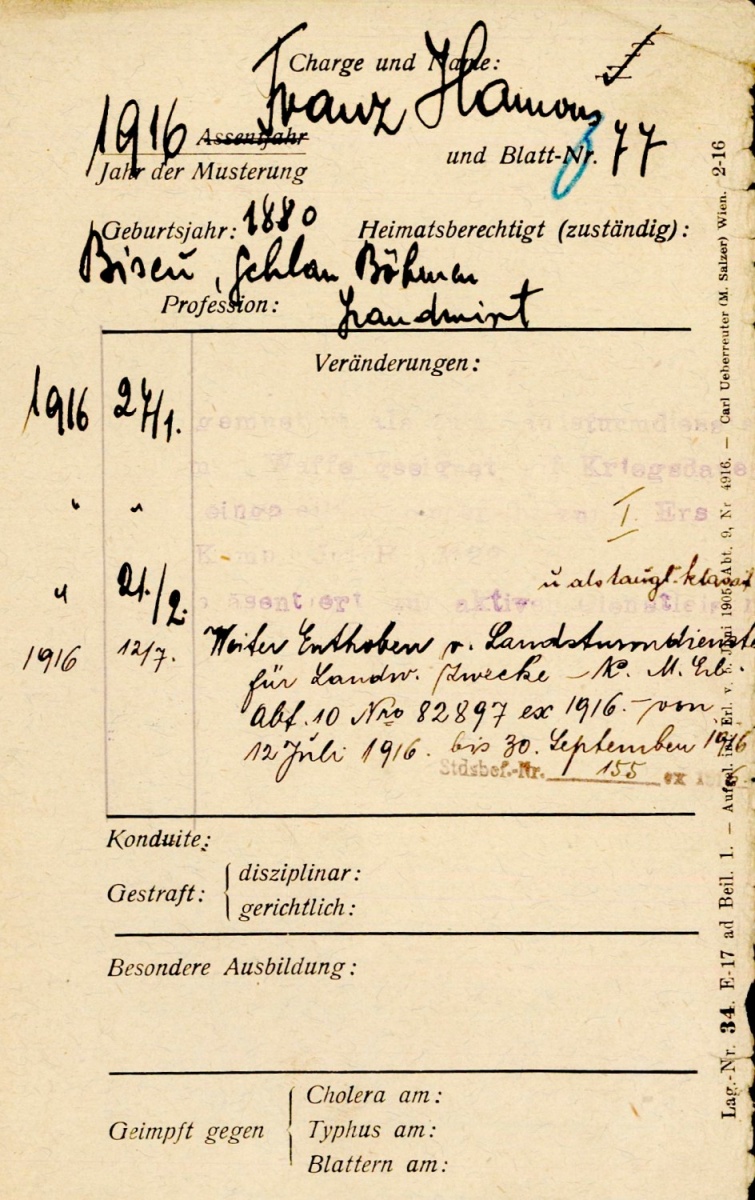 Charge und Name:
Franz Hamous
1916 Assentjahr
Jahr der Musterung
und Blatt-Nr. 77
Geburtsjahr: 1880 Heimatsberechtigt (zuständig):
Schlan Böhmen
Profession: Landwirt
Veränderungen:
1916 27/1.
" " einge I. Ers
u als taugl. klassif
" 21./2. präsentiert zur aktiv
1916 12/7. Weiter Enthoben v. Landsturmdienste
für Landw. Zwecke – K. M. Erl.
Abt. 10 Nro 82897 ex 1916. – von
12 Juli 1916. bis 30. September 1916
Stdsbef.-Nr. 155 ex
Konduite:
Gestraft: { disziplinar:
gerichtlich:
Besondere Ausbildung:
Geimpft gegen { Cholera am:
Typhus am:
Blattern am:
Lag.-Nr. 34. E-17 ad Beil. 1. — Juni 1905, Abt. 9, Nr 4916. — Carl Ueberreuter (M. Salzer) Wien. 2-16